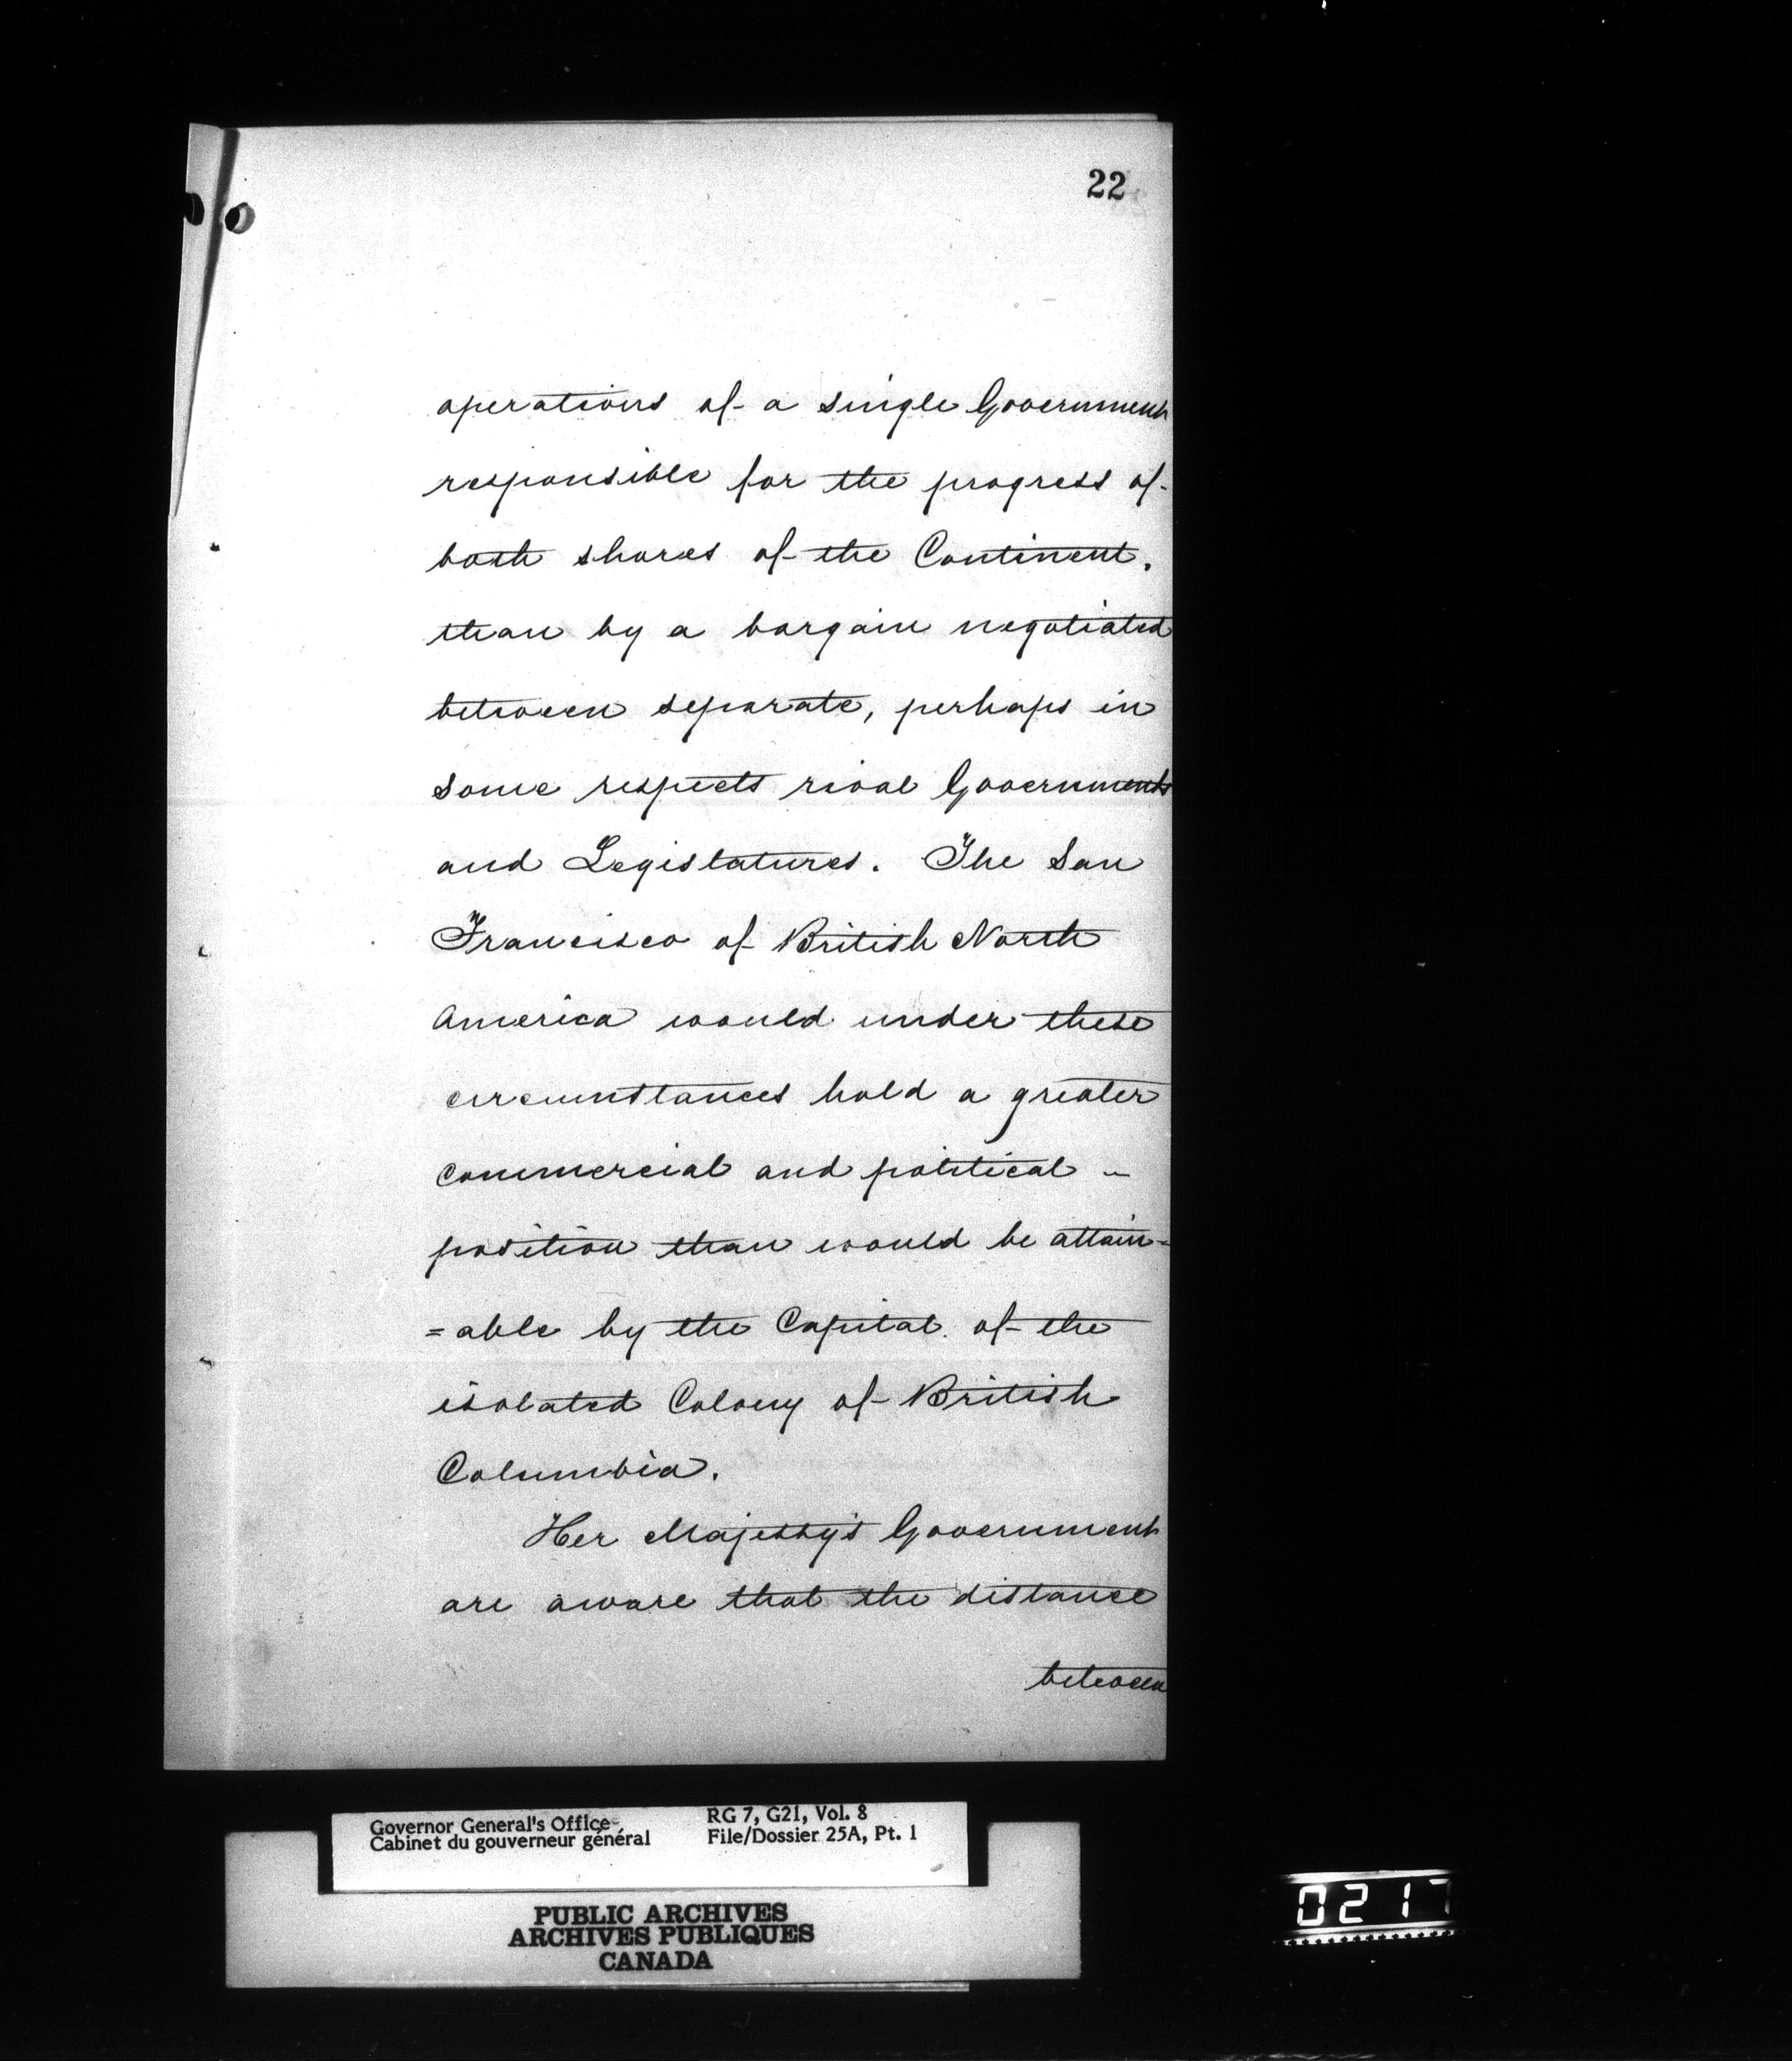 22
operations of a single Government
responsible for the progress of
both shores of the Continent,
than by a bargain negotiated
between separate, perhaps in
some respects rival Governments
and Legislatures. The San
Francisco of British North
America would under these
circumstances hold a greater
commercial and political -
position than would be attain=
=able by the Capital of the
isolated Colony of British
Columbia.
Her Majesty's Government
are aware that the distance
between
Governor General's Office
Cabinet du gouverneur général
RG 7, G21, Vol. 8
File/Dossier 25A, Pt. 1
PUBLIC ARCHIVES
ARCHIVES PUBLIQUES
CANADA
0217